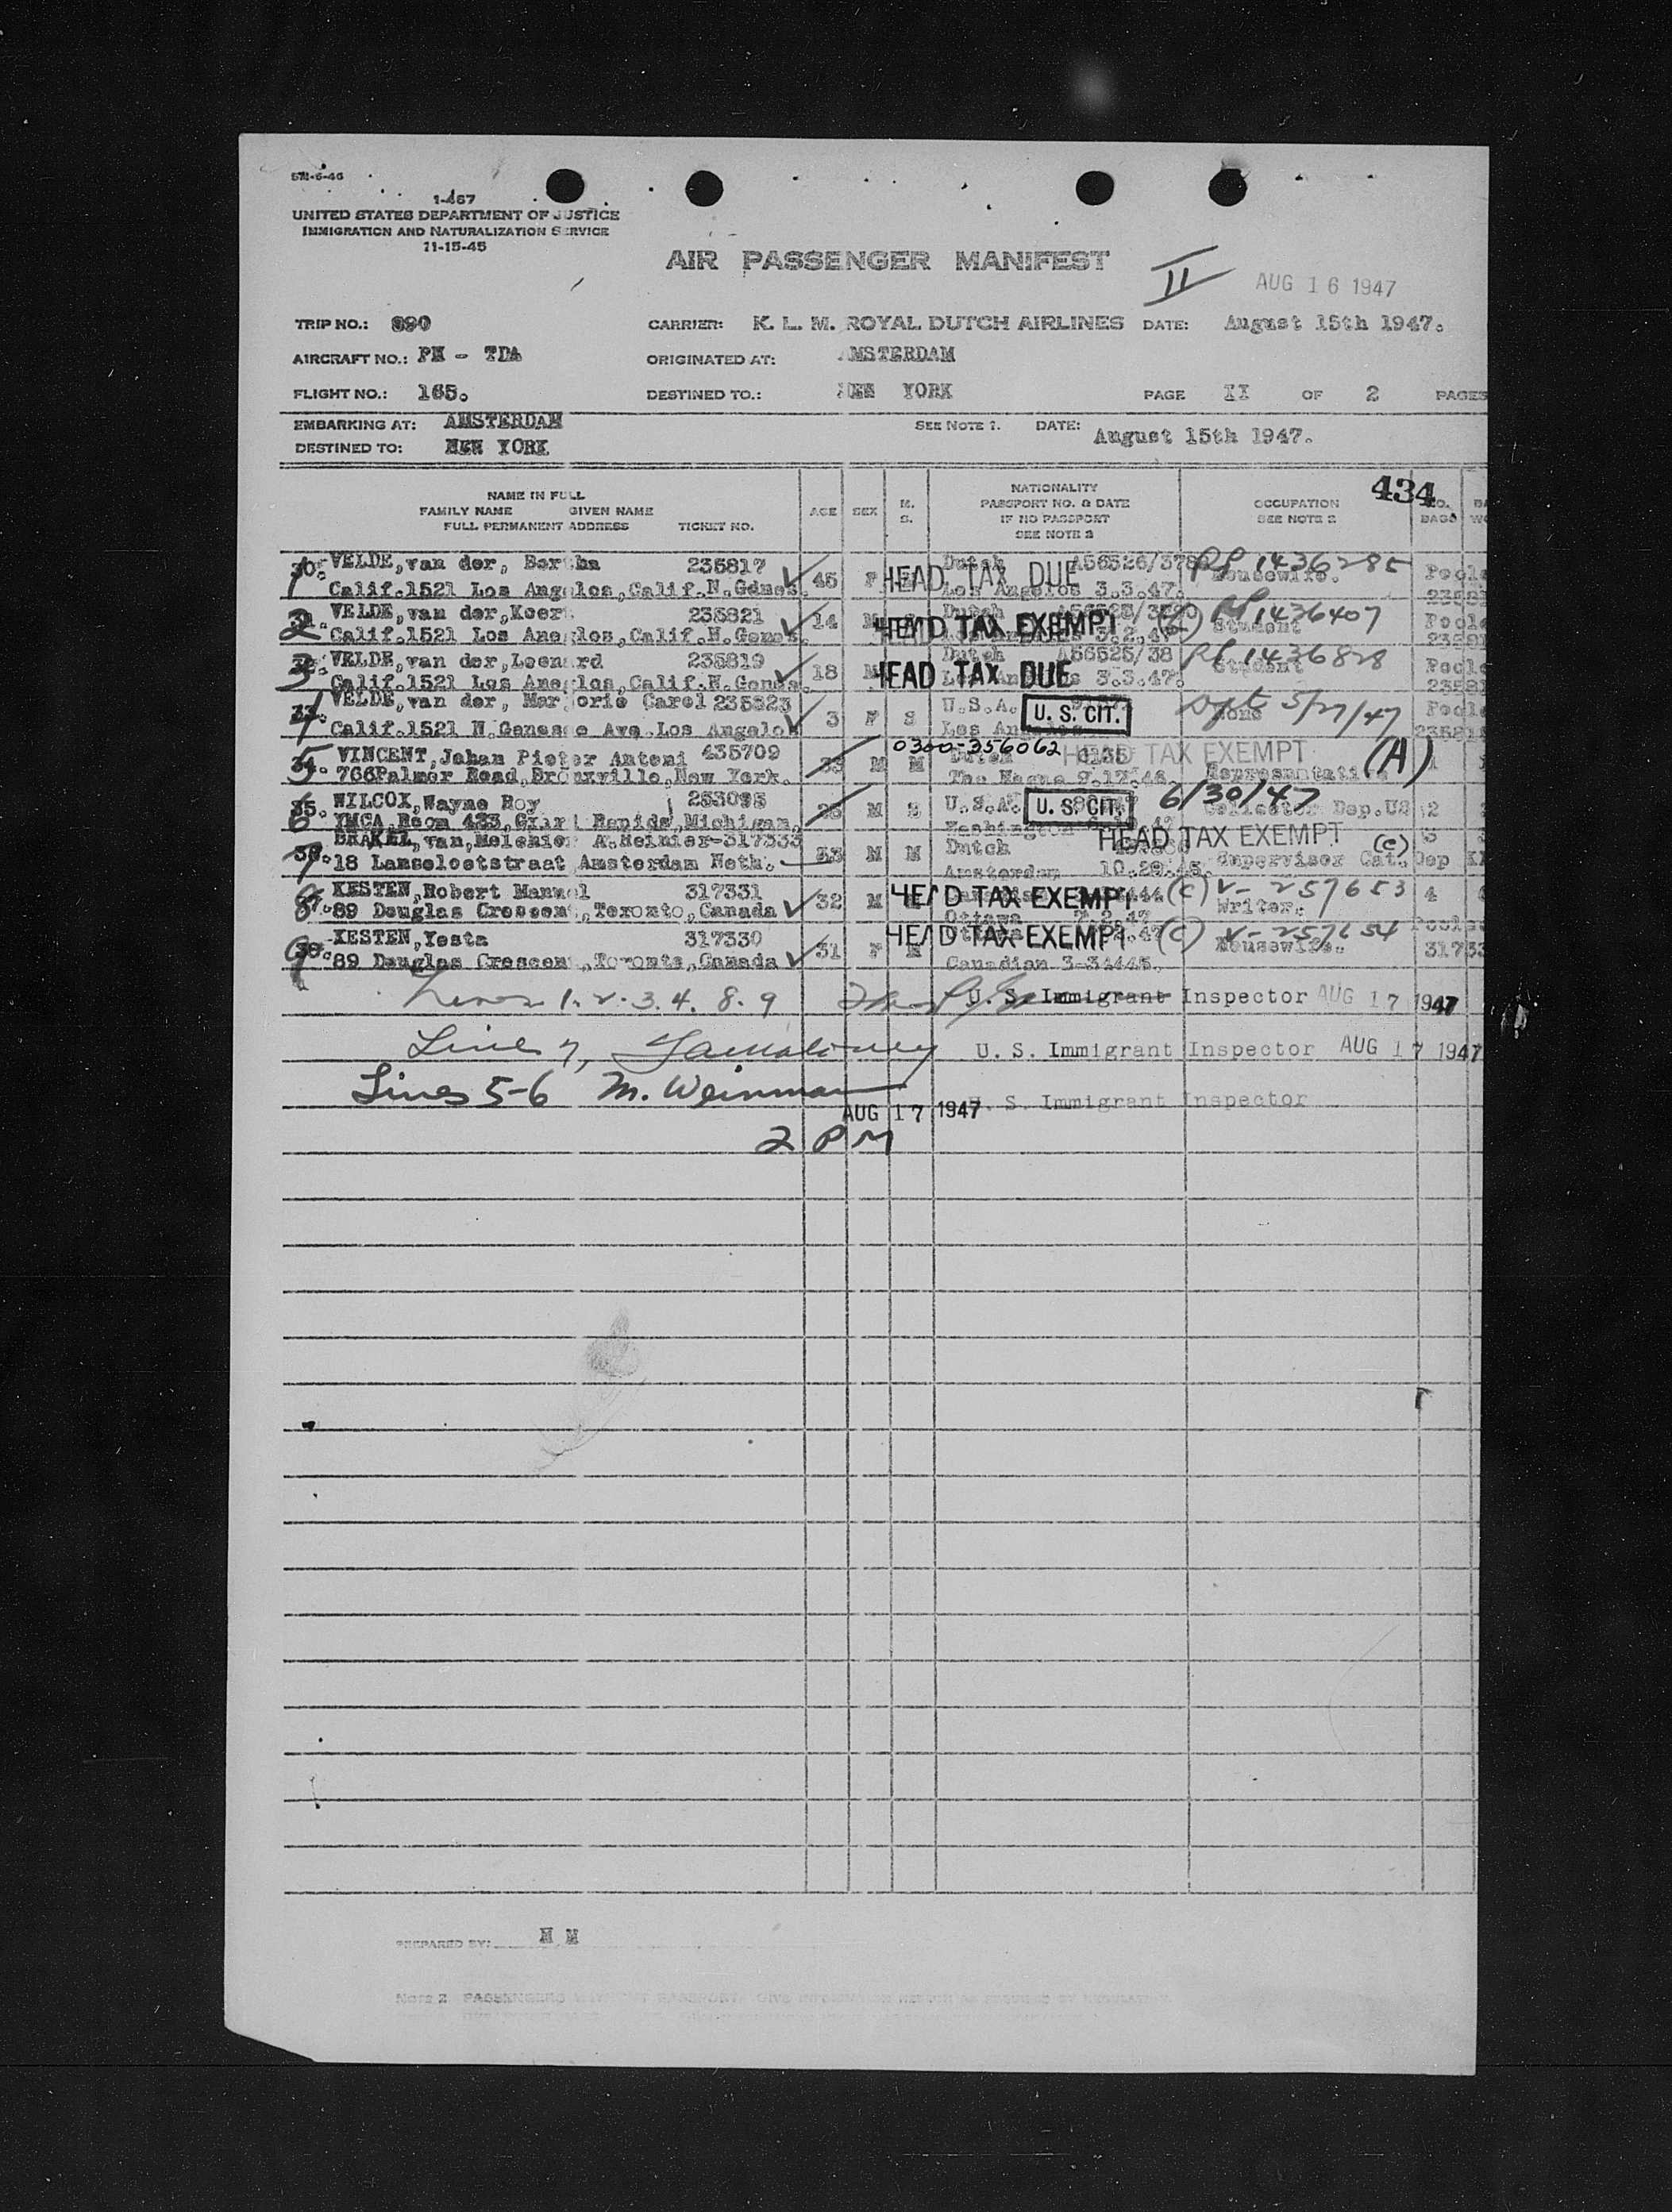 1-467
UNITED STATES DEPARTMENT OF JUSTICE
IMMIGRATION AND NATURALIZATION SERVICE
11-15-45
AIR PASSENGER MANIFEST
II AUG 16 1947
TRIP NO.: 890 CARRIER: K. L. M. ROYAL DUTCH AIRLINES DATE: August 15th 1947.
AIRCRAFT NO.: PH - TDA ORIGINATED AT: AMSTERDAM
FLIGHT NO.: 165. DESTINED TO.: NEW YORK PAGE II OF 2 PAGES
EMBARKING AT: AMSTERDAM SEE NOTE 1. DATE: August 15th 1947.
DESTINED TO: NEW YORK
434
NAME IN FULL
FAMILY NAME GIVEN NAME
FULL PERMANENT ADDRESS TICKET NO.
AGE SEX M. S.
NATIONALITY
PASSPORT NO. & DATE
IF NO PASSPORT
SEE NOTE 2
OCCUPATION
SEE NOTE 2
NO. BAGS
1 30. VELDE, van der, Bertha 235817 Dutch A56526/3789 RP 1436285
Calif. 1521 Los Angelos, Calif. N. 45 F HEAD TAX DUE Los Angelos 3.3.47. Housewife.
2 31. VELDE, van der, Koert 235821 Dutch RP 1436407
Calif. 1521 Los Angelos, Calif. N. 14 M HEAD TAX EXEMPT 3.2.47 Student
3 32. VELDE, van der, Leonard 235819 Dutch A56525/38 RP 1436828
Calif. 1521 Los Angelos, Calif. N. 18 M HEAD TAX DUE 3.3.47. Student
4 33. VELDE, van der, Marjorie Carol 235823 U.S.A. U. S. CIT. None 5/27/47
Calif. 1521 N. Genesee Ave. Los Angelo 3 F S Los Angelos
5 34. VINCENT, Johan Pieter Antoni 435709 0300-356062 Dutch HEAD TAX EXEMPT (A)
766 Palmer Road, Bronxville, New York. 35 M M The Hague 9.17.46. 1
6 35. WILCOX, Wayne Roy 253095 U.S.A. U. S. CIT. 6/30/47
YMCA Room 433, Grand Rapids, Michigan. M S Washington Collector Dep. US 2
7 36. BRAKEL, van, Melchior A. Reinier-317333 Dutch HEAD TAX EXEMPT (c)
18 Lanseloetstraat Amsterdam Neth. 33 M M Amsterdam 10.29.45. Supervisor Cat. Dep
8 37. KESTEN, Robert Manuel 317331 HEAD TAX EXEMPT (c) V-257653
89 Douglas Crescent, Toronto, Canada 32 M Ottawa 7.2.47 Writer. 4
9 38. KESTEN, Yesta 317330 HEAD TAX EXEMPT (c) V-257654
89 Douglas Crescent, Toronto, Canada 31 F Canadian 3-34445. Housewife.
Lines 1. 2. 3. 4. 8. 9 U. S. Immigrant Inspector AUG 17 1947
Line 7, U. S. Immigrant Inspector AUG 17 1947
Lines 5-6 M. Weinman U. S. Immigrant Inspector
AUG 17 1947
2 PM
PREPARED BY: H M